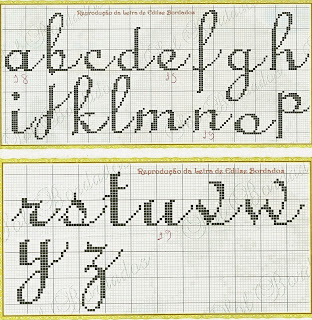 Reprodução da Letra de Célias Bordados
a b c d e f g h
18 18
i j k l m n o p
19
Reprodução da Letra de Célias Bordados
r s t u v w
19
y z